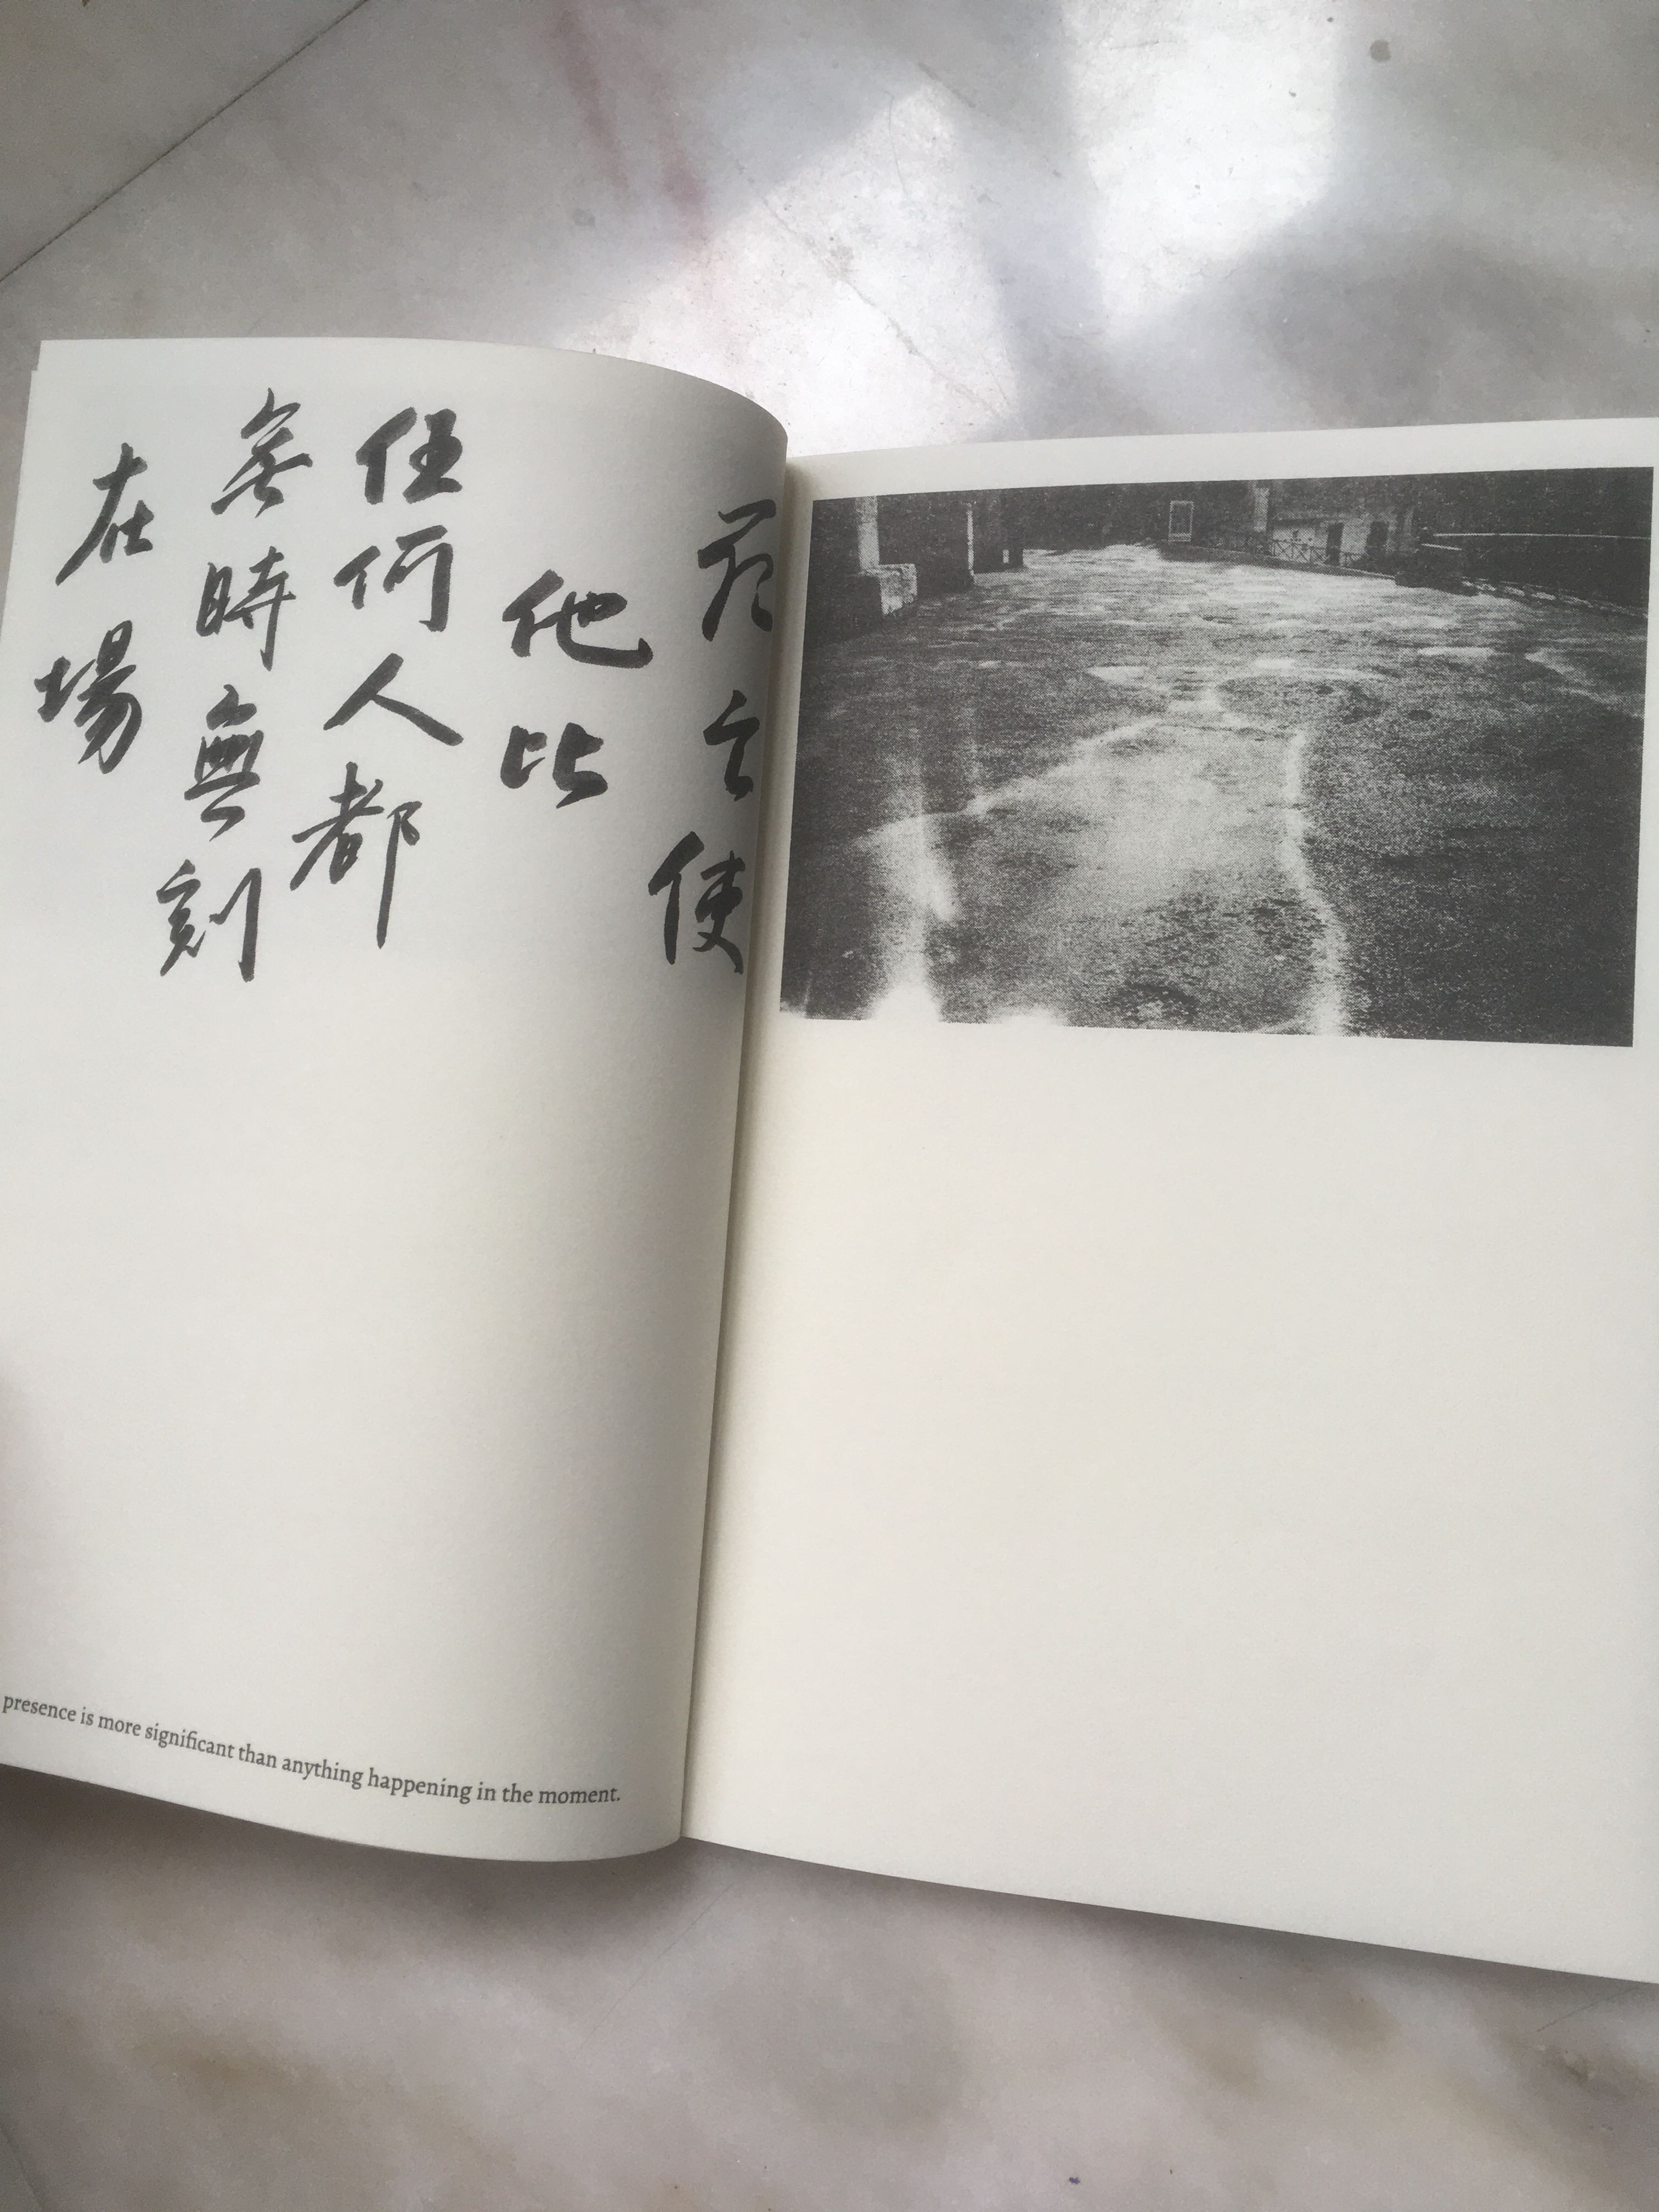 死亡使
他比
任何人都
無時無刻
在場
presence is more significant than anything happening in the moment.